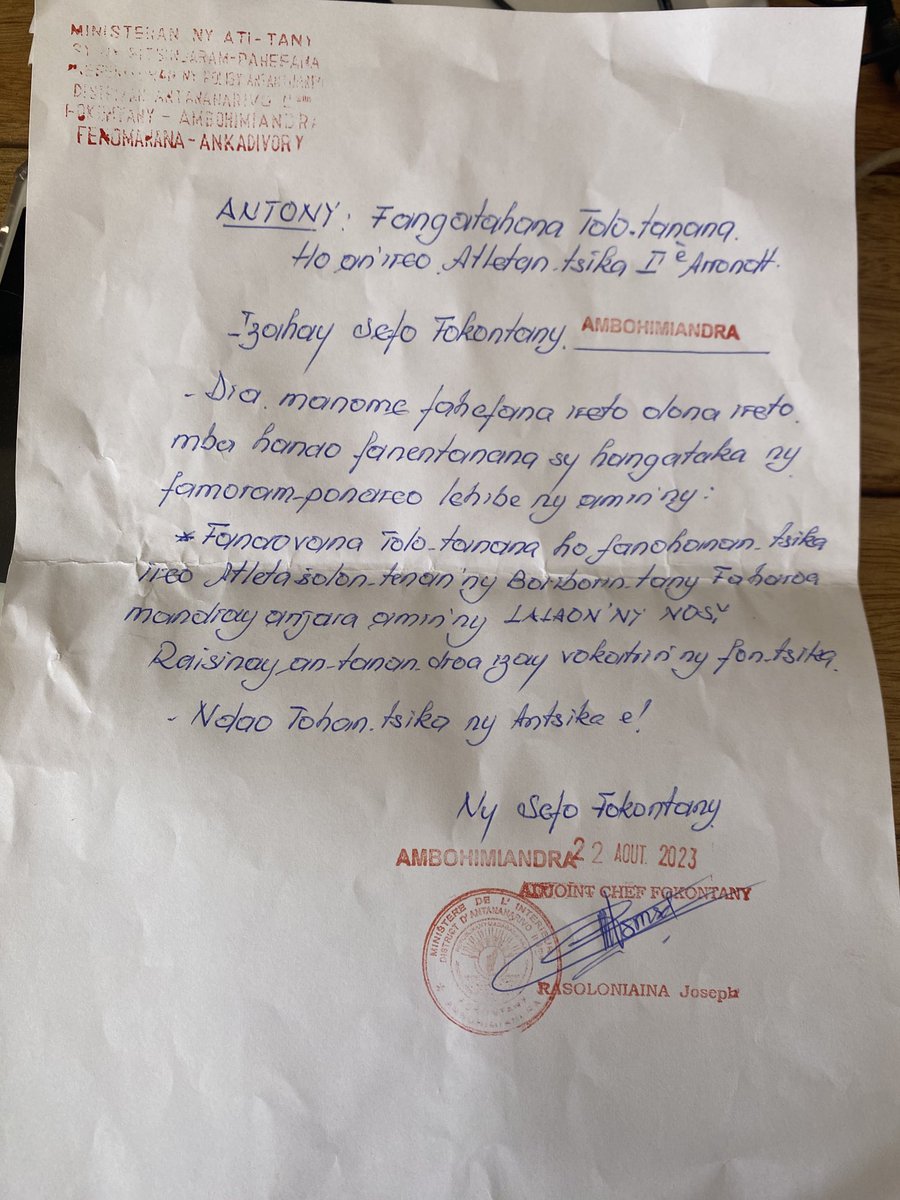 MINISTERAN NY ATI-TANY
SY NY FITSINJARAM-PAHEFANA
DISTRIKAN ANTANANARIVO II
FOKONTANY - AMBOHIMIANDRA
FENOMANANA - ANKADIVORY
ANTONY: Fangatahana Tolo-tanana
Ho an'ireo Atletan-tsika IIè Arrondt.
-Izahay Sefo Fokontany AMBOHIMIANDRA
- Dia manome fahefana ireto olona ireto
mba hanao fanentanana sy hangataka ny
famoram-ponareo lehibe ny amin'ny:
* Fanaovana Tolo-tanana ho fanohanan-tsika
ireo Atleta solon-tenan'ny Boriborin-tany Faharoa
mandray anjara amin'ny LALAON'NY NOSY
Raisinay an-tanan-droa izay vokatrin'ny fon-tsika.
- Ndao Tohan-tsika ny Antsika e!
Ny Sefo Fokontany
AMBOHIMIANDRA 22 AOUT 2023
ADJOINT CHEF FOKONTANY
MINISTERE DE L'INTERIEUR
DISTRICT D'ANTANANARIVO II
RASOLONIAINA Joseph